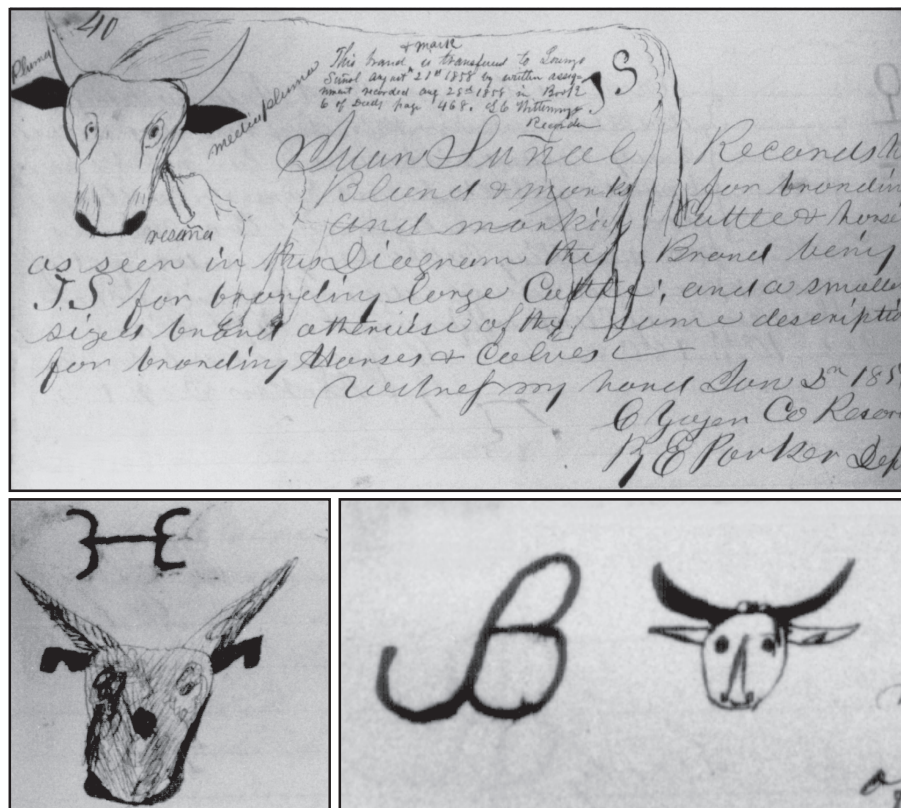 40
& mark
Pluma
This brand is transfered to Lorenzo
Suñol August 21st 1858 by written assig-
nment recorded aug 28th 1858 in Book
6 of Deeds page 468.
Recorder
media pluma
JS
Juan Suñol Records h
Brand & mark for brandin
and marking Cattle & horse
reseña
as seen in this Diagram the Brand being
J.S for branding large Cattle, and a smaller
sized brand otherwise of the same descriptio
for branding Horses & Calves
Witness my hand Jan 185
Co Recor
By E Parker Dep
B